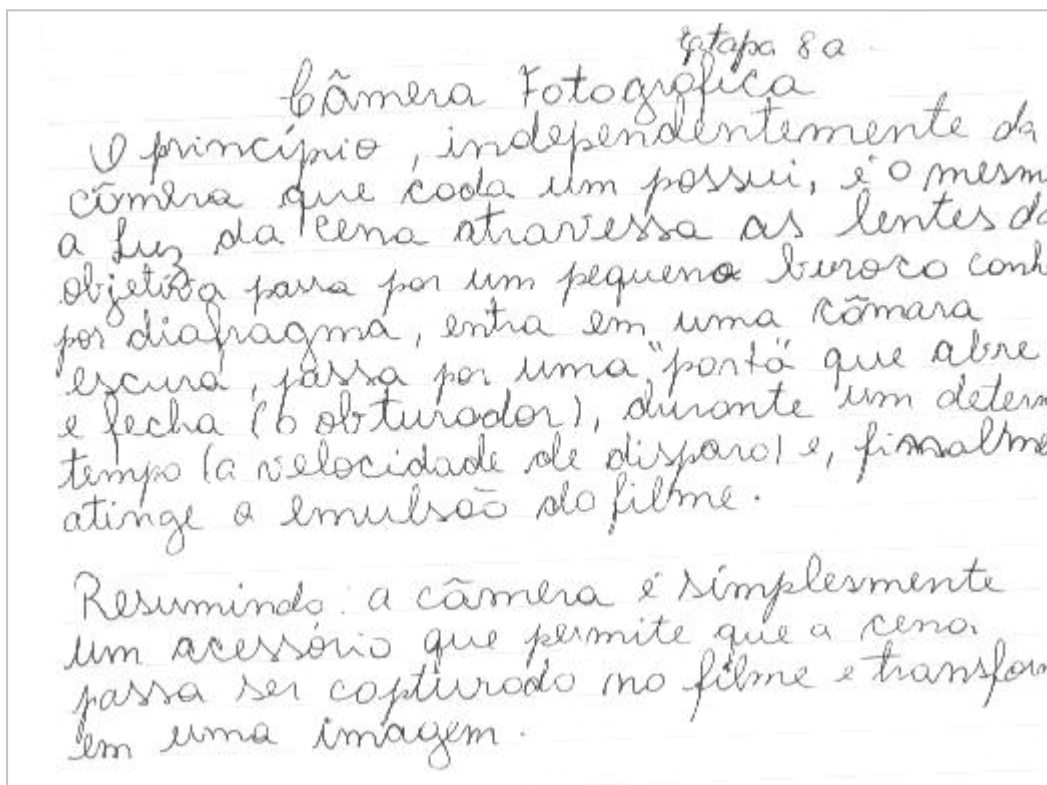 Etapa 8a
Câmera Fotográfica
O princípio, independentemente da
câmera que cada um possui, é o mesm
a Luz da cena atravessa as lentes da
objetiva passa por um pequeno buraco conh
por diafragma, entra em uma câmara
escura, passa por uma "porta" que abre
e fecha (o obturador), durante um determ
tempo (a velocidade de disparo) e, finalme
atinge a emulsão do filme.
Resumindo: a câmera é simplesmente
um acessório que permite que a cena
passa ser capturado no filme e transfor
em uma imagem.